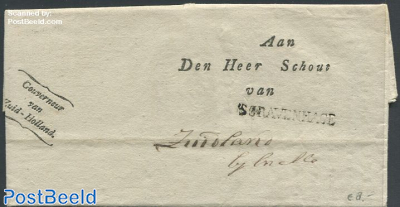 PostBeeld
Aan
Den Heer Schout
van
Gouverneur
van
Zuid-Holland.
S'GRAVENHAGE
Zuidland
by
€8,-
PostBeeld